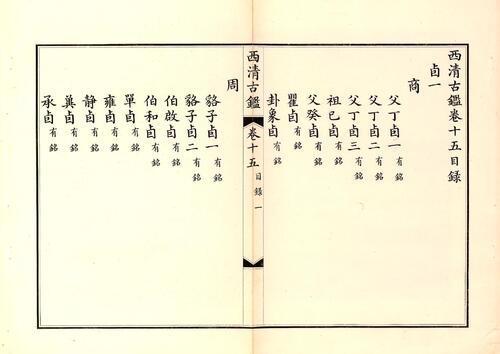 西清古鑑卷十五目録
卣一
商
父丁卣一有銘
父丁卣二有銘
父丁卣三有銘
祖已卣有銘
父癸卣有銘
瞿卣有銘
卦象卣有銘
西清古鑑
卷十五
目録
一
周
貉子卣一有銘
貉子卣二有銘
伯啟卣有銘
伯和卣有銘
單卣有銘
雍卣有銘
静卣有銘
冀卣有銘
承卣有銘